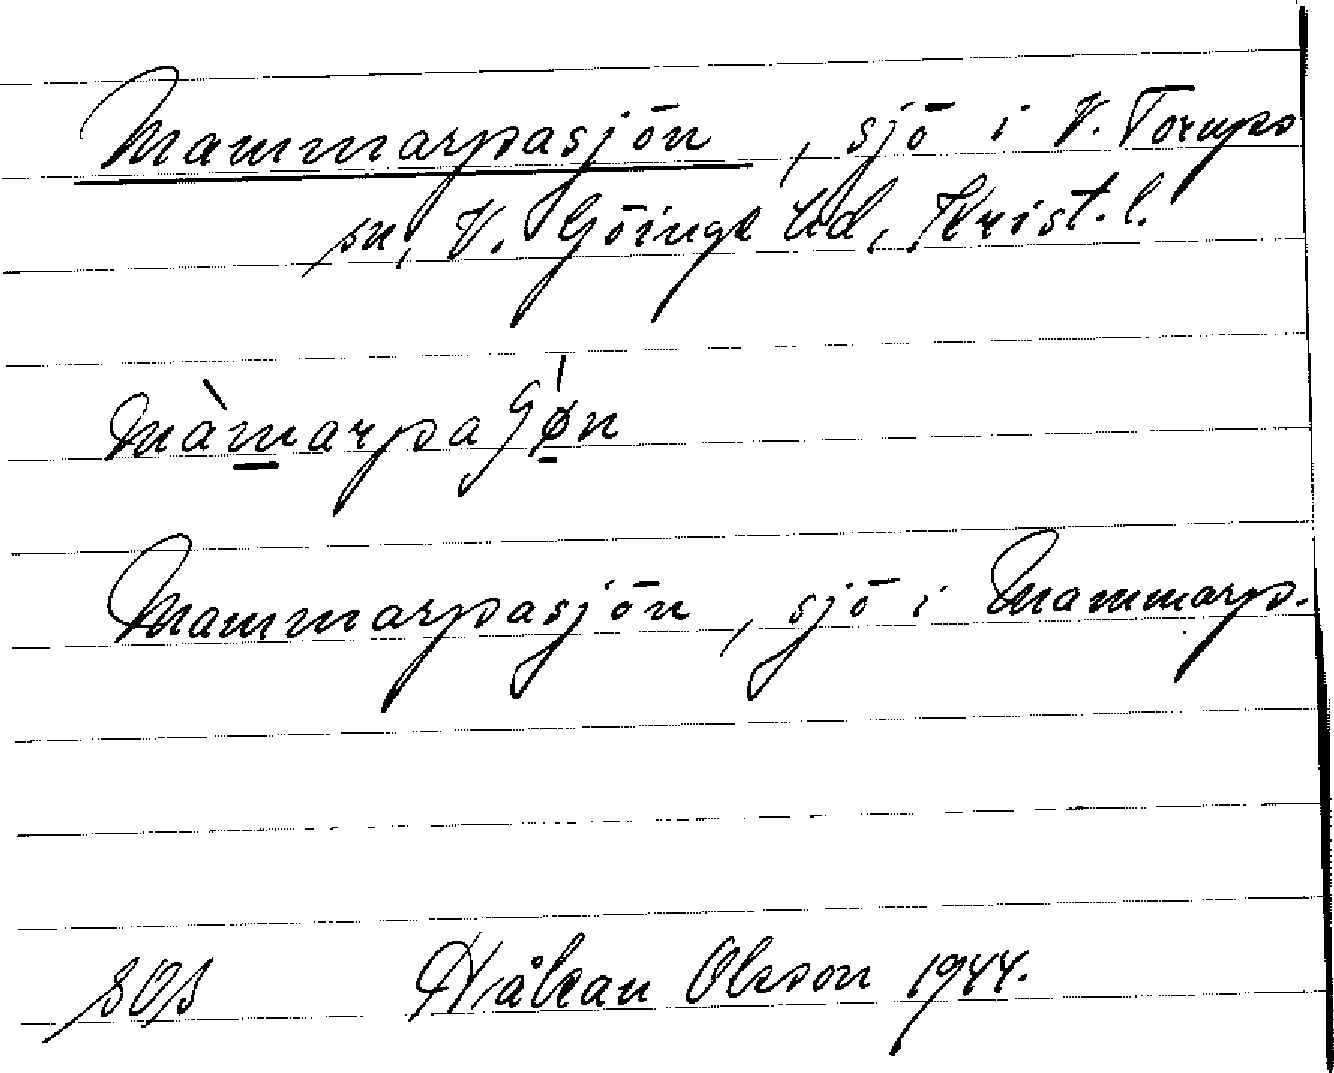 Mammarpasjön, sjö i V. Torups
sn, V. Göinge hd, Krist. l.
màmarpaʃø̱n
Mammarpasjön, sjö i Mammarp.
SOS Håkan Olsson 1944.